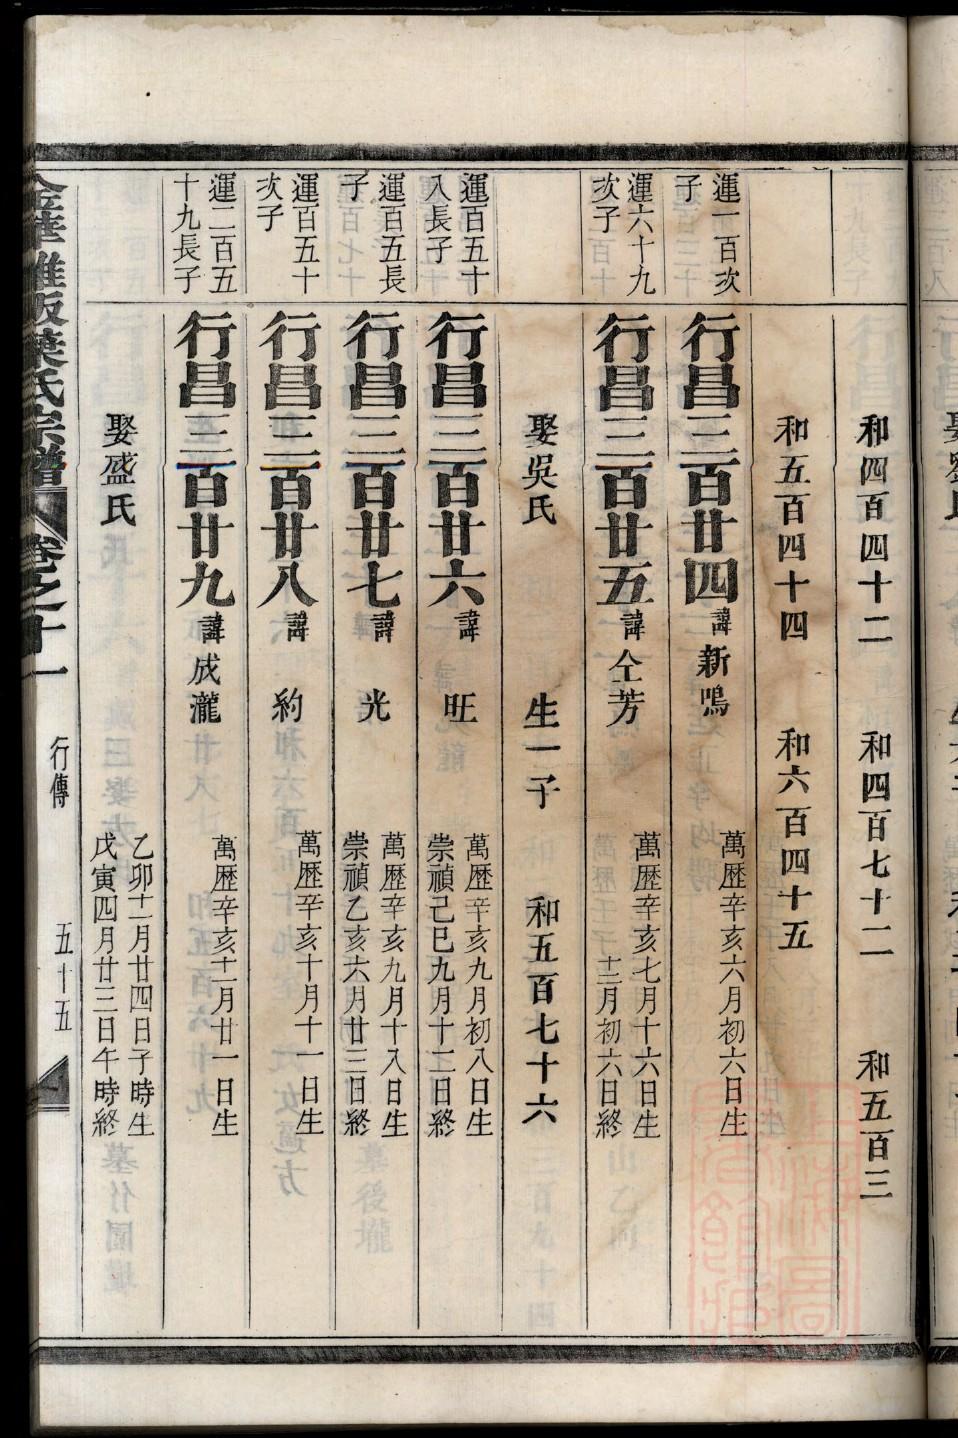 和四百四十二 和四百七十二 和五百三
和五百四十四 和六百四十五
運一百次子
行昌三百廿四 諱 新鳴 萬歷辛亥六月初六日生
運六十九次子
行昌三百廿五 諱 仝芳 萬歷辛亥七月十六日生
十二月初六日終
娶吳氏 生一子 和五百七十六
運百五十八長子
行昌三百廿六 諱 旺 萬歷辛亥九月初八日生
崇禎己巳九月十二日終
運百五長子
行昌三百廿七 諱 光 萬歷辛亥九月十八日生
崇禎乙亥六月廿三日終
運百五十次子
行昌三百廿八 諱 約 萬歷辛亥十月十一日生
運二百五十九長子
行昌三百廿九 諱 成瀧 萬歷辛亥十一月廿一日生
娶盛氏 乙卯十二月廿四日子時生
戊寅四月廿三日午時終
金華雅畈葉氏宗譜 卷之十一 行傳 五十五